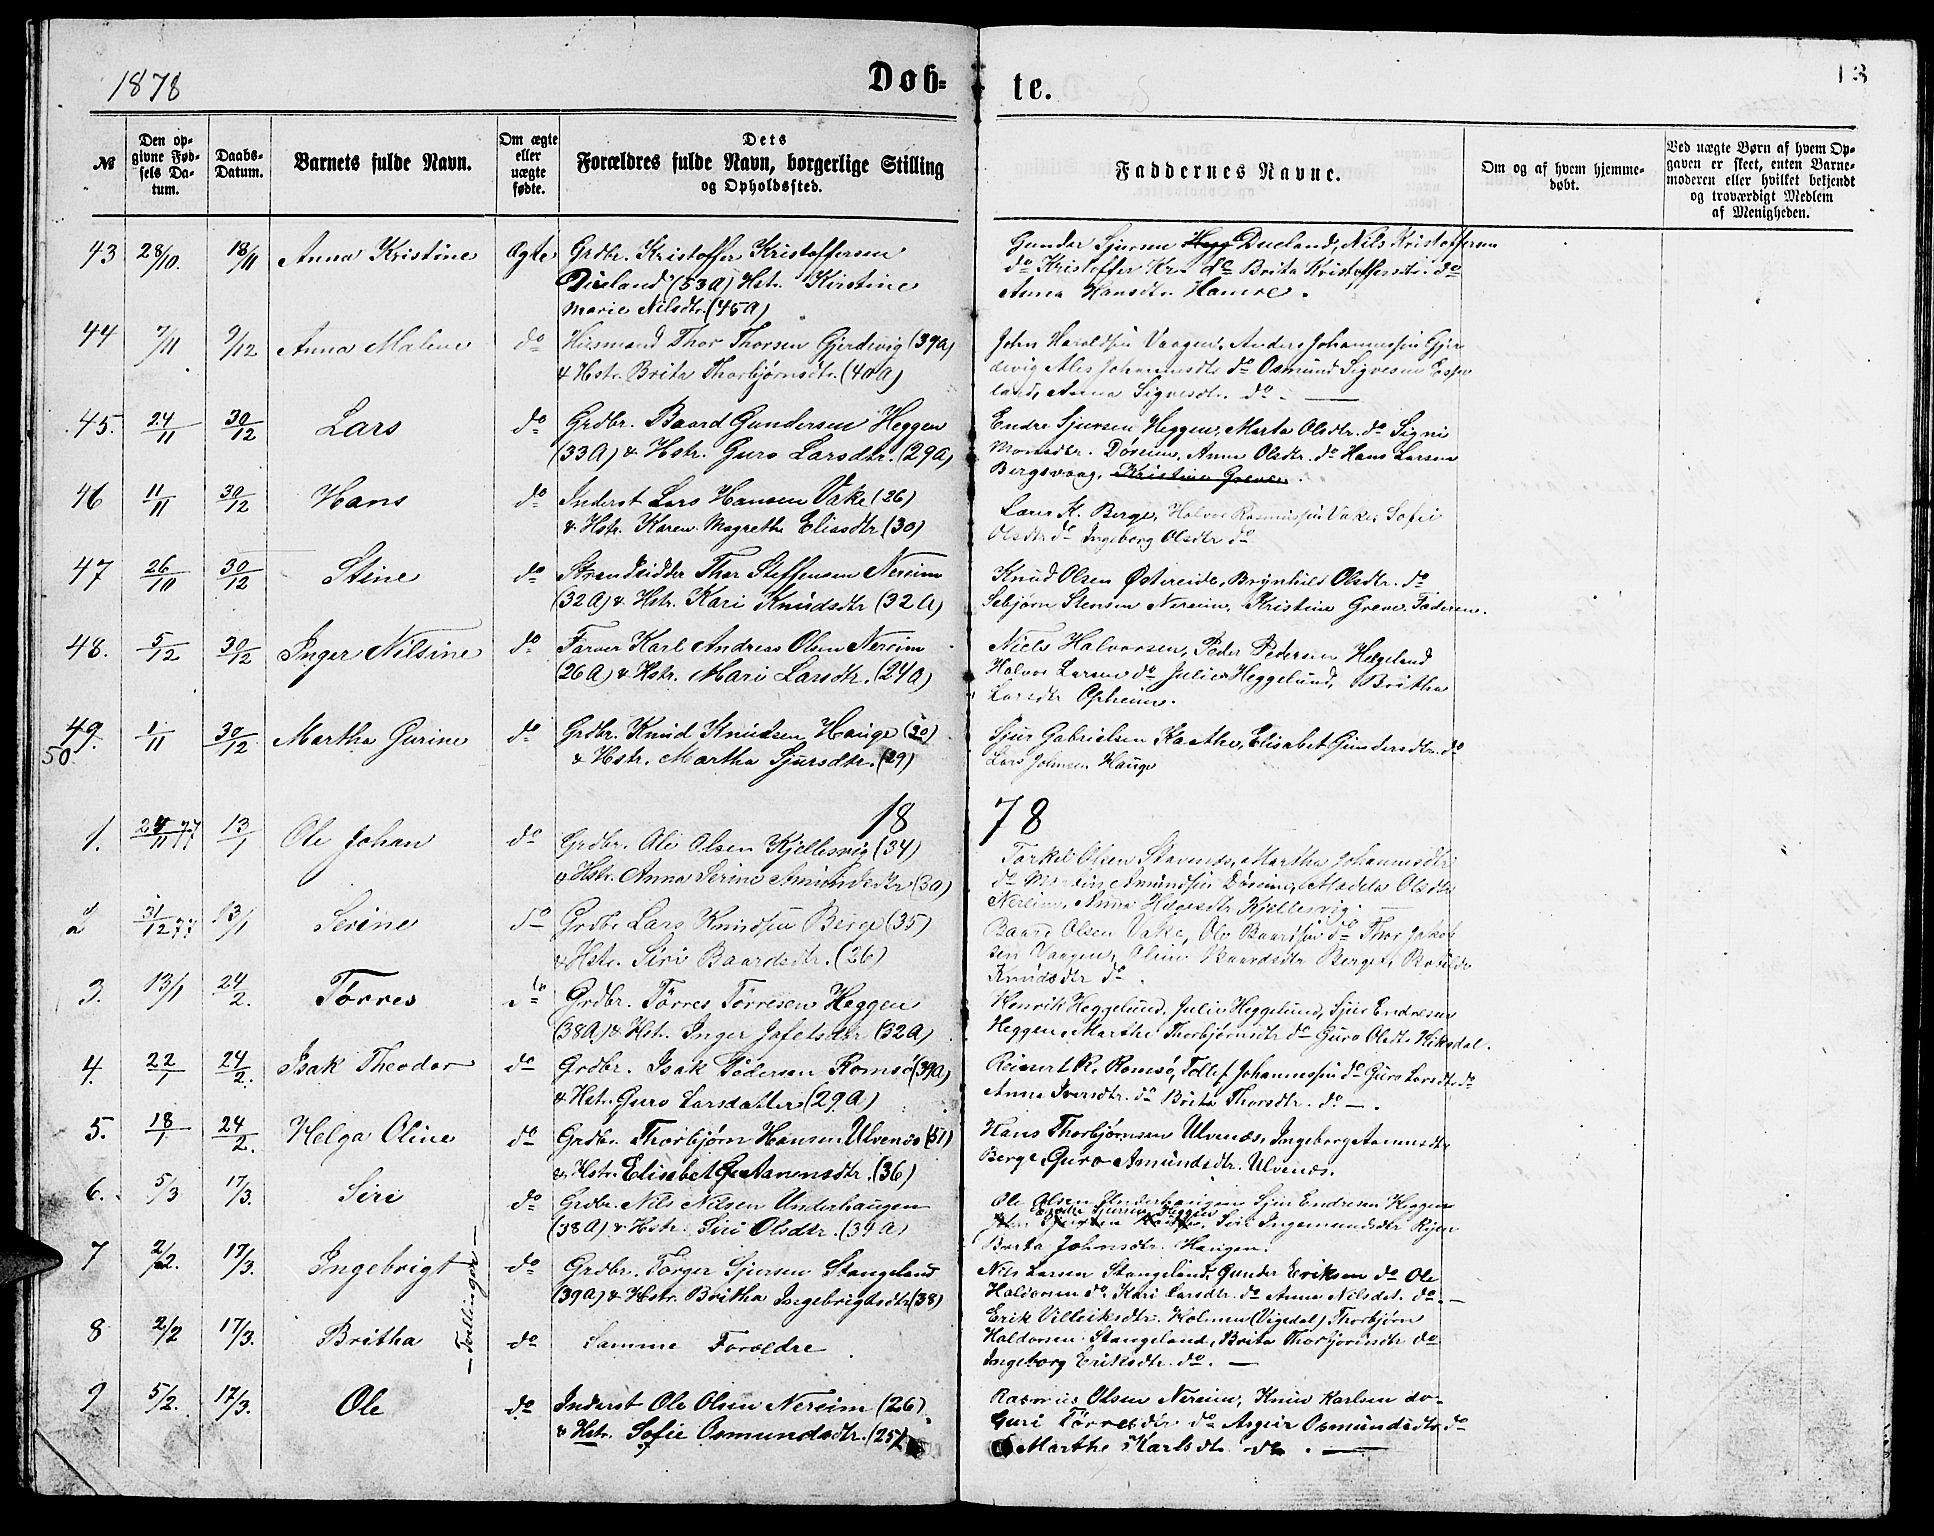 1878
Døb-
te.
13
№
Den op-
givne Fød-
sels Da-
tum.
Daabs-
Datum.
Barnets fulde Navn.
Om ægte
eller
uægte
fødte.
Dets
Forældres fulde Navn, borgerlige Stilling
og Opholdssted.
Faddernes Navne.
Om og af hvem hjemme-
døbt.
Ved uægte Børn af hvem Op-
gaven er skeet, enten Barne-
moderen eller hvilket bekjendt
og troværdigt Medlem
af Menigheden.
43 28/10. 18/11 Anna Kristine Ægte Grdbr. Kristoffer Kristoffersen
Dueland (53A) Hstr. Kirstine
Marie Nilsdtr. (45A)
Gunder Sjursen Hegg Dueland, Nils Kristoffersen
do Kristoffer Kr. do Brita Kristoffersdtr. do
Anna Hansdtr. Hamre.
44 7/11 9/12 Anna Malene do Husmand Thor Thorsen Gjerdevig (39A)
& Hstr. Brita Thorbjørnsdtr. (40A)
John Haraldsen Vaagen, Anders Johannessen Gjer
devig Johannesdtr do Osmund Sigvesen Espe
land, Anna Sigvesdtr. do. —
45. 24/11 30/12 Lars do Grdbr. Baard Gundersen Heggen
(33A) & Hstr. Guro Larsdtr. (29A)
Endre Sjursen Heggen, Marta Olsdtr. do Signi
Monsdtr. Døseim, Anna Olsdtr. do Hans Larsen
Bergsvaag, Kristine Greven.
46 11/11 30/12 Hans do Inderst Lars Hansen Vake (26)
& Hstr. Karen Magrethe Eliasdtr (30)
Lars K. Berge, Halvor Rasmussen Vake, Sofie
Olsdtr do Ingeborg Olsdtr do
47 26/10 30/12 Stine do Strandsidder Thor Steffensen Nereim
(32A) & Hstr. Kari Knudsdtr (32A)
Knud Olsen Østereide, Brynhild Olsdtr. do
Sebjørn Stensen Nereim, Kristine Greve, Faderen.
48. 5/12 30/12 Inger Nilsine do Farver Karl Andreas Olsen Nereim
(26A) & Hstr. Mari Larsdtr. (24A)
Niels Halvorsen, Peder Pedersen Helgeland
Halvor Larsen do Julie Heggelund, Britha
Larsdtr Opheim.
49. 1/11 30/12 Martha Gurine do Grdbr. Knud Knudsen Hauge (30)
50 & Hstr. Martha Sjursdtr. (29)
Sjur Gabrielsen Kaathe, Elisabet Gundersdtr. do
Lars Johnsen Hauge
18 78
1. 24/11 77 13/1 Ole Johan do Grdbr. Ole Olsen Kjellesvig (34)
& Hstr. Anna Serine Amundsdtr (30)
Torkel Olsen Stavenes, Martha Johannesdtr
do Amundsen Døseim, Olsdtr
Nereim, Anna Helgesdtr Kjellesvig. —
2 31/12 77 13/1 Serine do Grdbr Lars Knudsen Berge (35)
& Hstr. Siri Baardsdtr. (26)
Baard Olsen Vake, Ole Baardsen do Thor Jakob
sen Vaagen, Oline Baardsdtr Berge,
Knudsdtr do.
3. 13/1 24/2. Tørres do Grdbr. Tørres Tørresen Heggen
(38A) & Hstr. Inger Jofetsdtr (32A)
Henrik Heggelund, Julie Heggelund, Sjur Endresen
Heggen, Marthe Thorbjørnsdtr do Guro Olsdtr Hiksdal.
4. 22/1 24/2. Isak Theodor do Grdbr. Isak Pedersen Romsø (39A)
& Hstr. Guro Larsdatter (29A)
Reinert R. Romsø, Tollef Johannessen do Guro Larsdtr. do
Anna Iversdtr. do Brita Thorsdtr. do —.
5. 18/1 24/2. Helga Oline do Grdbr. Thorbjørn Hansen Ulvenæs (51)
& Hstr. Elisabet G. Aamundsdtr. (36)
Hans Thorbjørnsen Ulvenæs, Ingeborg Aamundsdtr
Berge, Guro Amundsdtr. Ulvenæs.
6. 5/3 17/3. Siri do Grdbr. Nils Nilsen Underhaugen
(38A) & Hstr. Siri Olsdtr. (34A)
Ole Olsen Underhaugen Sjur Endresen Heggen
Endre Sjursen Heggen
Siri Ingemundsdtr Ryen
Berta Johnsdtr. Haugen.
7 2/2. 17/3. Ingebrigt do Grdbr. Torger Sjursen Stangeland
(39A) & Hstr. Britha Ingebrigtsdtr (38)
Nils Larsen Stangeland, Gunder Eriksen do Ole
Haldorsen do, Kari Larsdtr. do Anna Nilsdtr. do. —
8 2/2 17/3. Britha do Samme Forældre
— Tvillinger —
Erik Villeiksdtr. Holmen (Vigedal) Thorbjørn
Haldorsen Stangeland, Brita Thorbjørnsdtr do
Ingeborg Eriksdtr. do. —
9 5/2. 17/3. Ole do Inderst Ole Olsen Nereim (26)
& Hstr. Sofie Osmundsdtr. (25)
Rasmus Olsen Nereim, Knud Karlsen do-
Guri Tørresdtr do Asgjer Osmundsdtr do
Marthe Karlsdtr do. —